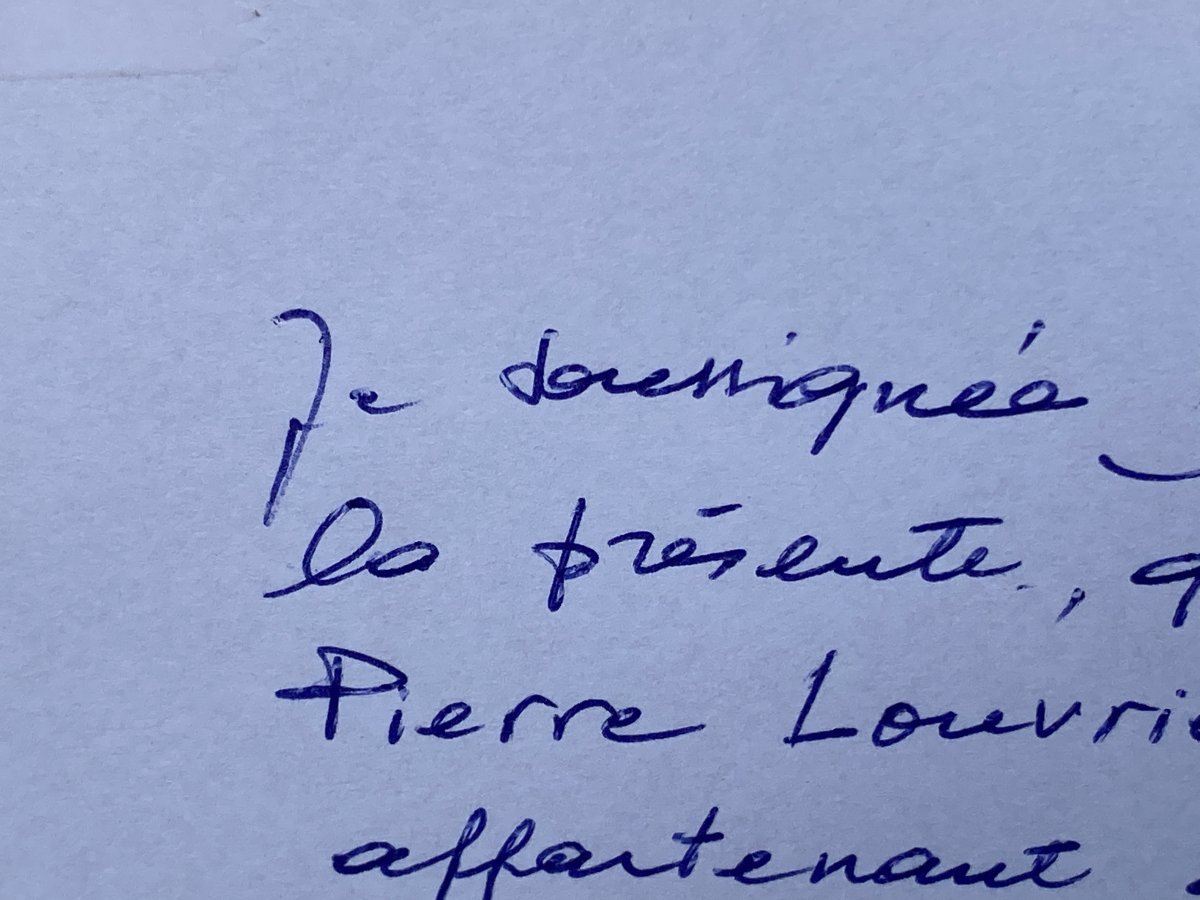 Je soussignée
la présente, q
Pierre Louvrie
appartenant